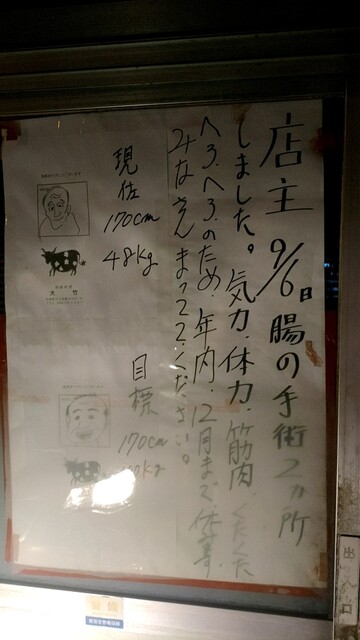 店主 9/6日 腸の手術 2カ所
しました。気力、体力、筋肉、くたくた
へろへろのため、年内、12月まで休業
みなさん まっててください。
現在
170cm
48kg
目標
170cm
大竹
出入口
警備